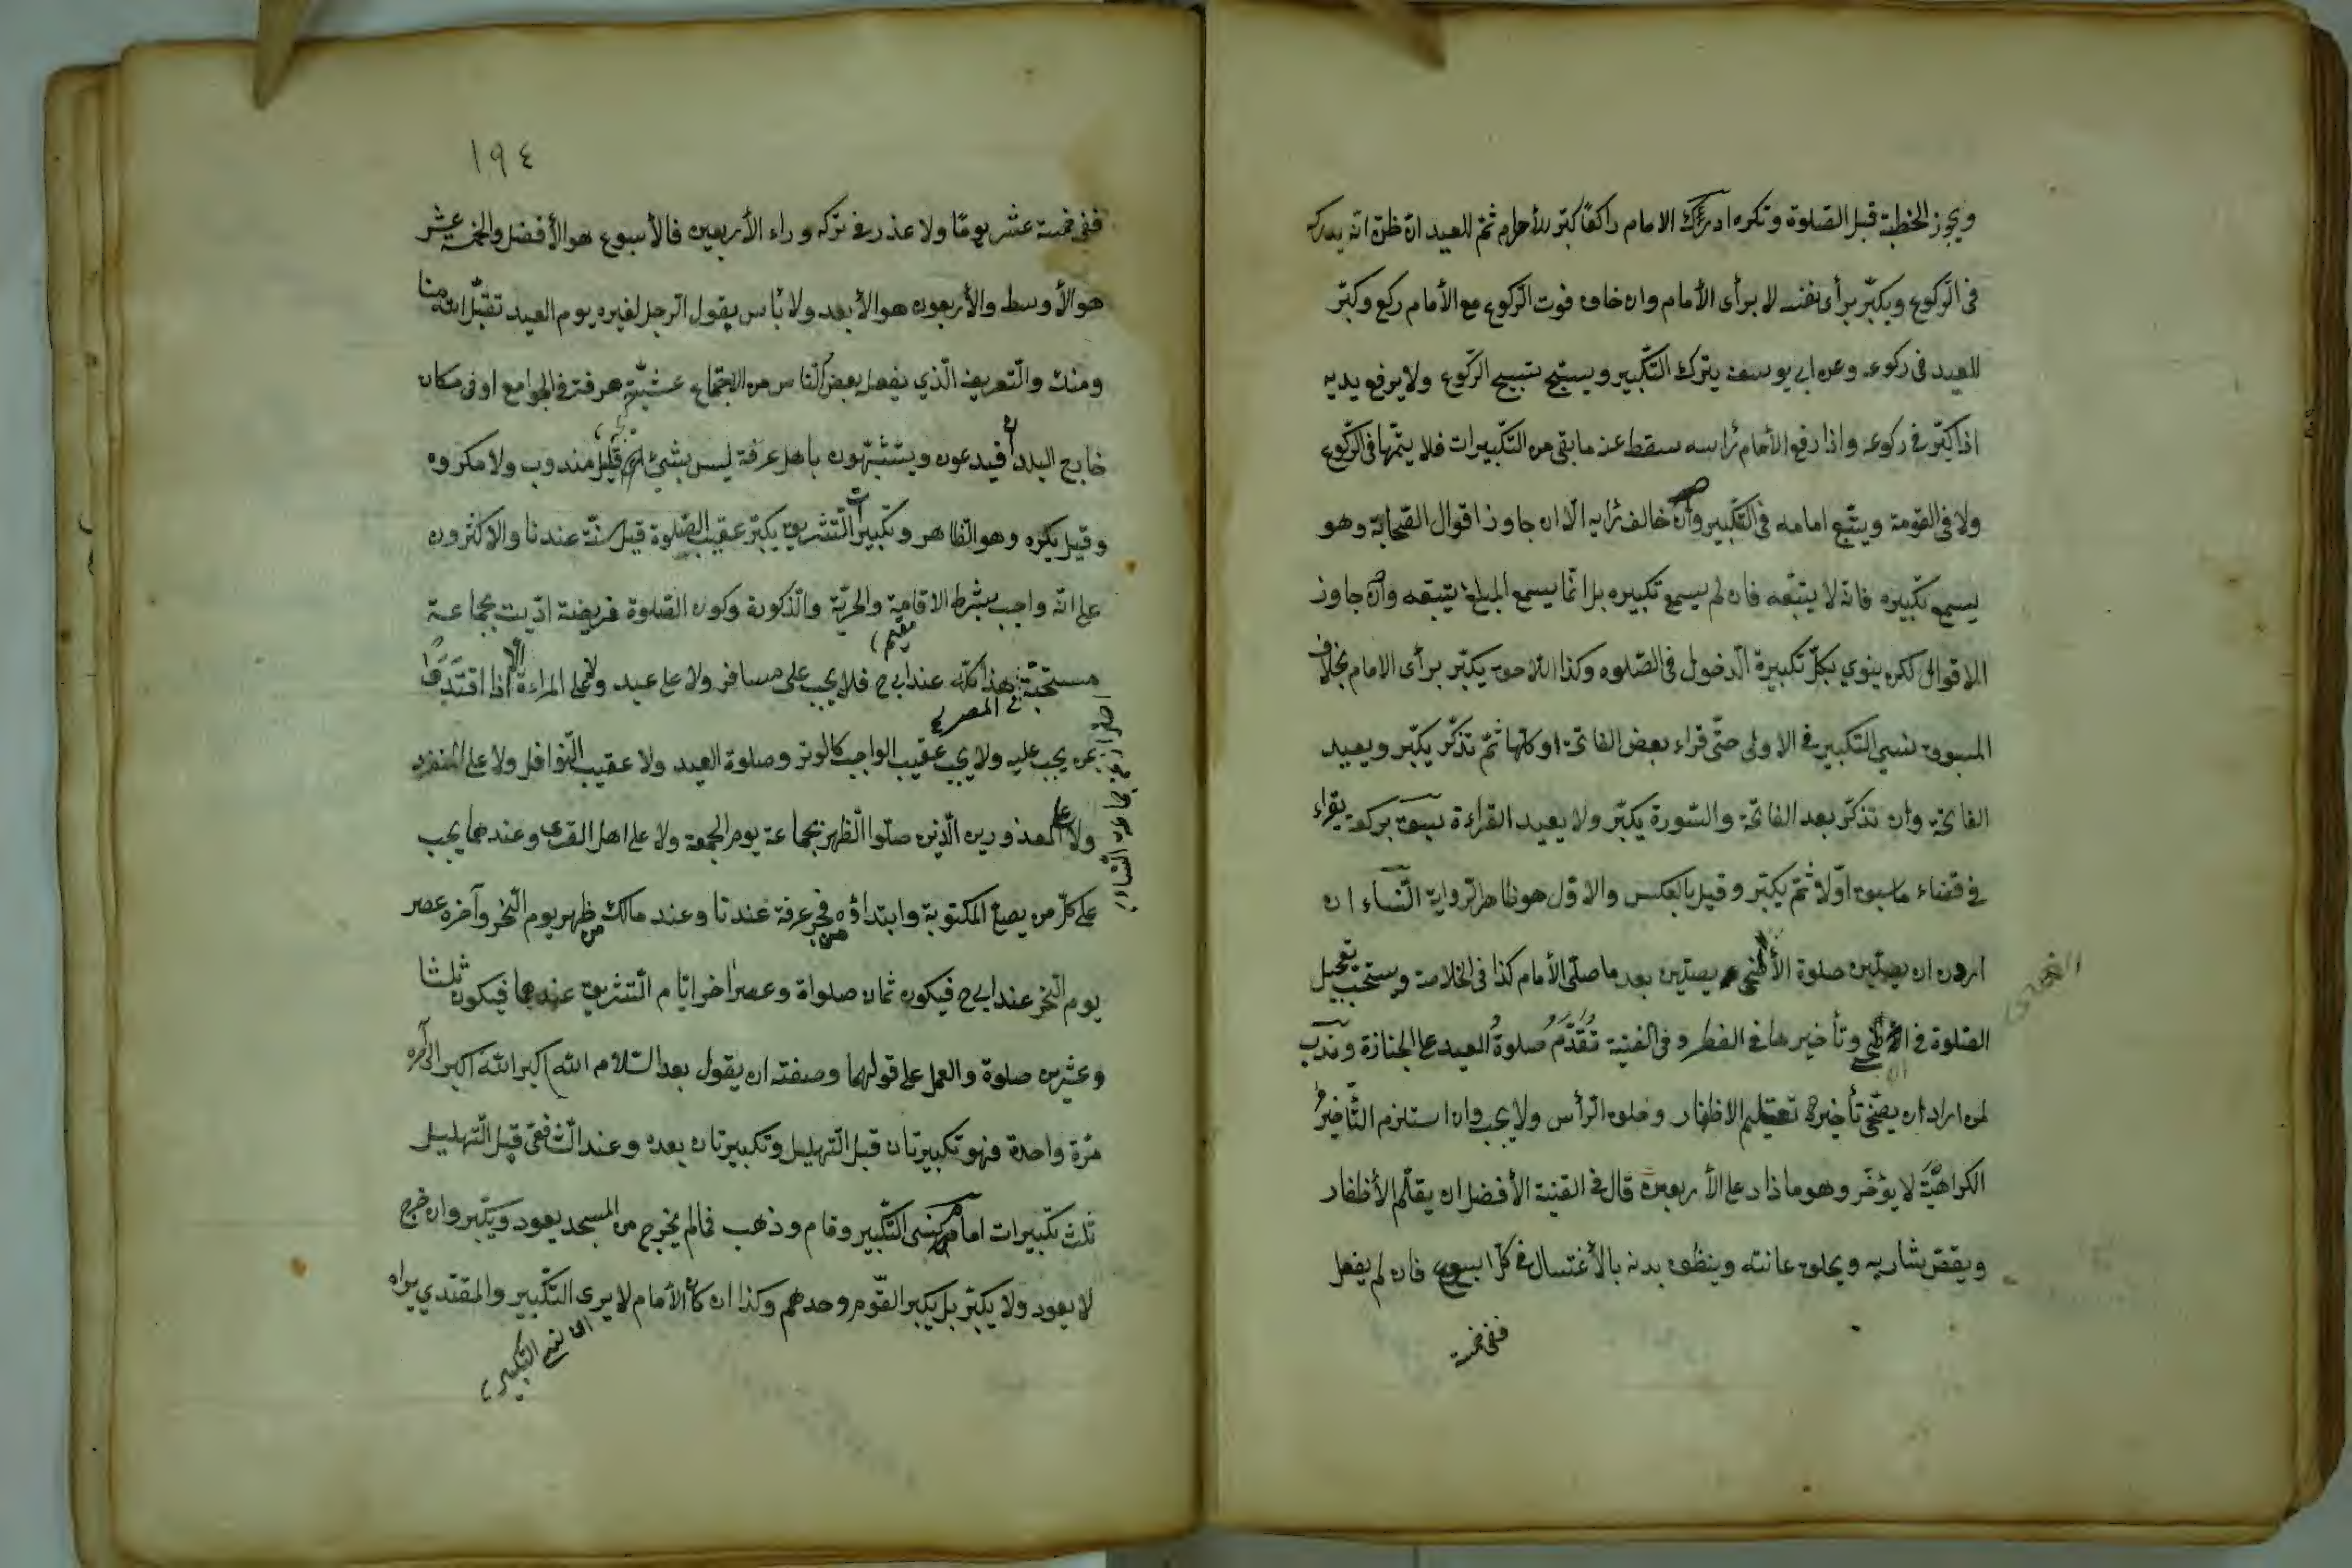 ويجوز الخطبة قبل الصلوة وتكره ادرك الامام راكعًا كبّر للأحرام ثمّ للعيد ان ظنّ انّه يدركه
فى الركوع ويكبّر برأى نفسه لا برأى الأمام وان خاف فوت الرّكوع مع الأمام ركع وكبّر
للعيد فى ركوعه وعن ابى يوسف يترك التّكبير ويسبّح تسبيح الرّكوع ولا يرفع يديه
اذا كبّر فى ركوعه واذا رفع الأمام رأسه سقط عنه ما بقى من التّكبيرات فلا يتمّها فى الرّكوع
ولا فى القومة ويتبع امامه فى التّكبير وان خالف رأيه الّا ان جاوز اقوال الصّحابة وهو
يسمع تكبيره فانّه لا يتبعه فان لم يسمع تكبيره بل انّما يسمع المبلغ يتبعه وان جاوز
الاقوال لكن ينوي بكلّ تكبيرة الدّخول فى الصّلوة وكذا اللاحق يكبّر برأى الامام بخلاف
المسبوق نسي التكبير فى الاولى حتّى قراء بعض الفاتحة او كلّها ثمّ تذكّر يكبّر ويعيد
الفاتحة وان تذكّر بعد الفاتحة والسّورة يكبّر ولا يعيد القراءة سبق بركعة يقراء
فى قضاء ما سبق اوّلا ثمّ يكبّر وقيل بالعكس والاوّل هو ظاهر الرواية النّساء ان
اردن ان يصلّين صلوة الأضحى يصلّين بعد ما صلّى الأمام كذا فى الخلاصة ويستحبّ تعجيل
الصّلوة فى الأضحى وتأخيرها فى الفطر وفى القنية تُقَدَّمُ صلوةُ العيد على الجنازة وندب
لمن اراد ان يضحّى تأخير تقليم الاظفار وحلق الرّأس ولا يجب وان استلزم التّأخيرُ
الكراهيّة لا يؤخّر وهو ما زاد على الأربعين قال فى القنية الأفضل ان يقلّم الأظفار
ويقصّ شاربه ويحلق عانته وينظف بدنه بالأغتسال فى كلّ اسبوع فان لم يفعل
ففى خمسة
١٩٤
ففى خمسة عشر يومًا ولا عذر فى تركه وراء الأربعين فالأسبوع هو الأفضل والخمسة عشر
هو الأوسط والأربعون هو الأبعد ولا بأس بقول الرّجل لغيره يوم العيد تقبّل الله منا
ومنك والتّعريف الّذي يفعل بعض النّاس من الاجتماع عشيّة عرفة فى الجوامع او فى مكان
خارج البلد فيدعون ويتشبّهون باهل عرفة ليس بشيئ اى قيل مندوب ولا مكروه
وقيل يكره وهو الظّاهر وتكبيرات التّشريق يكبّر عقيب الصّلوة قيل سنّة عندنا والاكثرون
على انّه واجب بشرط الاقامة والحريّة والذّكورة وكون الصّلوة فريضة ادّيت بجماعة
مستحبّة هذا كلّه عند ابى ح فلا يجب على مسافر ولا على عبد ولا على المراءة الّا اذا اقتدوا
مقيم
فى المصر
بمن يجب عليه ولا يجب عقيب الواجب كالوتر وصلوة العيد ولا عقيب النّوافل ولا على المنفرد
ولا على المعذورين الّذين صلّوا الظّهر بجماعة يوم الجمعة ولا على اهل القرى وعندهما يجب
على كلّ من يصلّى المكتوبة وابتداؤه من فجر عرفة عندنا وعند مالك من ظهر يوم النّحر وآخره عصر
يوم النّحر عند ابى ح فيكون ثمان صلواة وعصر اخر ايّام التّشريق عندهما فيكون ثلثا
وعشرين صلوة والعمل على قولهما وصفته ان يقول بعد السّلام الله اكبر الله اكبر الى آخره
مرّة واحدة فهو تكبيرتان قبل التّهليل وتكبيرتان بعده وعند الشّافعى قبل التّهليل
ثلث تكبيرات امام نسى التّكبير وقام وذهب فما لم يخرج من المسجد يعود ويكبّر وان خرج
لا يعود ولا يكبّر بل يكبّر القوم وحدهم وكذا ان كان الأمام لا يرى التكبير والمقتدي يراه